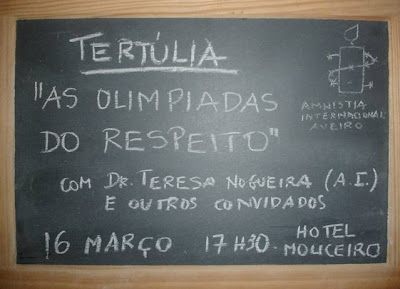 TERTÚLIA
"AS OLIMPIADAS
DO RESPEITO"
AMNISTIA
INTERNACIONAL
AVEIRO
COM DR. TERESA NOGUEIRA (A.I.)
E OUTROS CONVIDADOS
16 MARÇO 17H30. HOTEL
MOLICEIRO